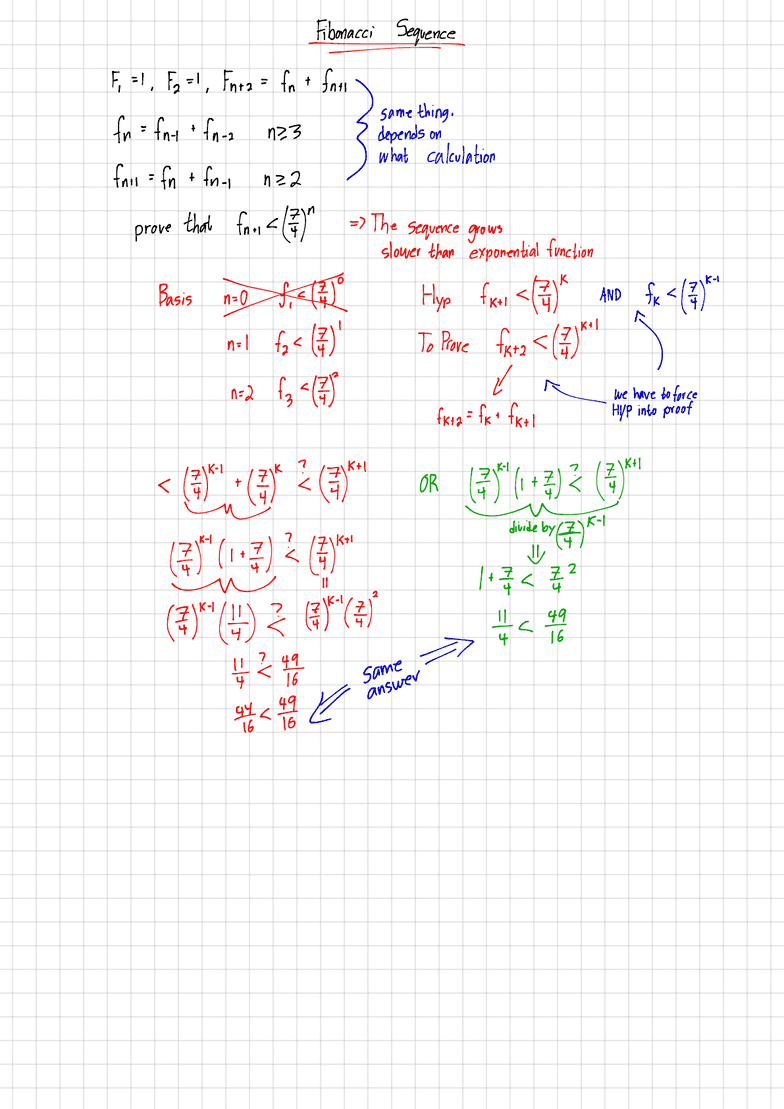 Fibonacci Sequence
F₁ =1, F₂ =1, Fₙ₊₂ = fₙ + fₙ₊₁
fₙ = fₙ₋₁ + fₙ₋₂ n≥3
fₙ₊₁ = fₙ + fₙ₋₁ n≥2
same thing.
depends on
what calculation
prove that fₙ₊₁ < (7/4)ⁿ => The sequence grows
slower than exponential function
Basis n=0 f₁ < (7/4)⁰
n=1 f₂ < (7/4)¹
n=2 f₃ < (7/4)²
Hyp f_{K+1} < (7/4)^K AND f_K < (7/4)^{K-1}
To Prove f_{K+2} < (7/4)^{K+1}
f_{K+2} = f_K + f_{K+1}
we have to force
HYP into proof
< (7/4)^{K-1} + (7/4)^K <? (7/4)^{K+1}
(7/4)^{K-1} (1 + 7/4) <? (7/4)^{K+1}
=
(7/4)^{K-1} (11/4) <? (7/4)^{K-1} (7/4)²
11/4 <? 49/16
44/16 < 49/16
OR (7/4)^{K-1} (1 + 7/4) <? (7/4)^{K+1}
divide by (7/4)^{K-1}
⇓
1 + 7/4 < 7/4²
11/4 < 49/16
Same
answer